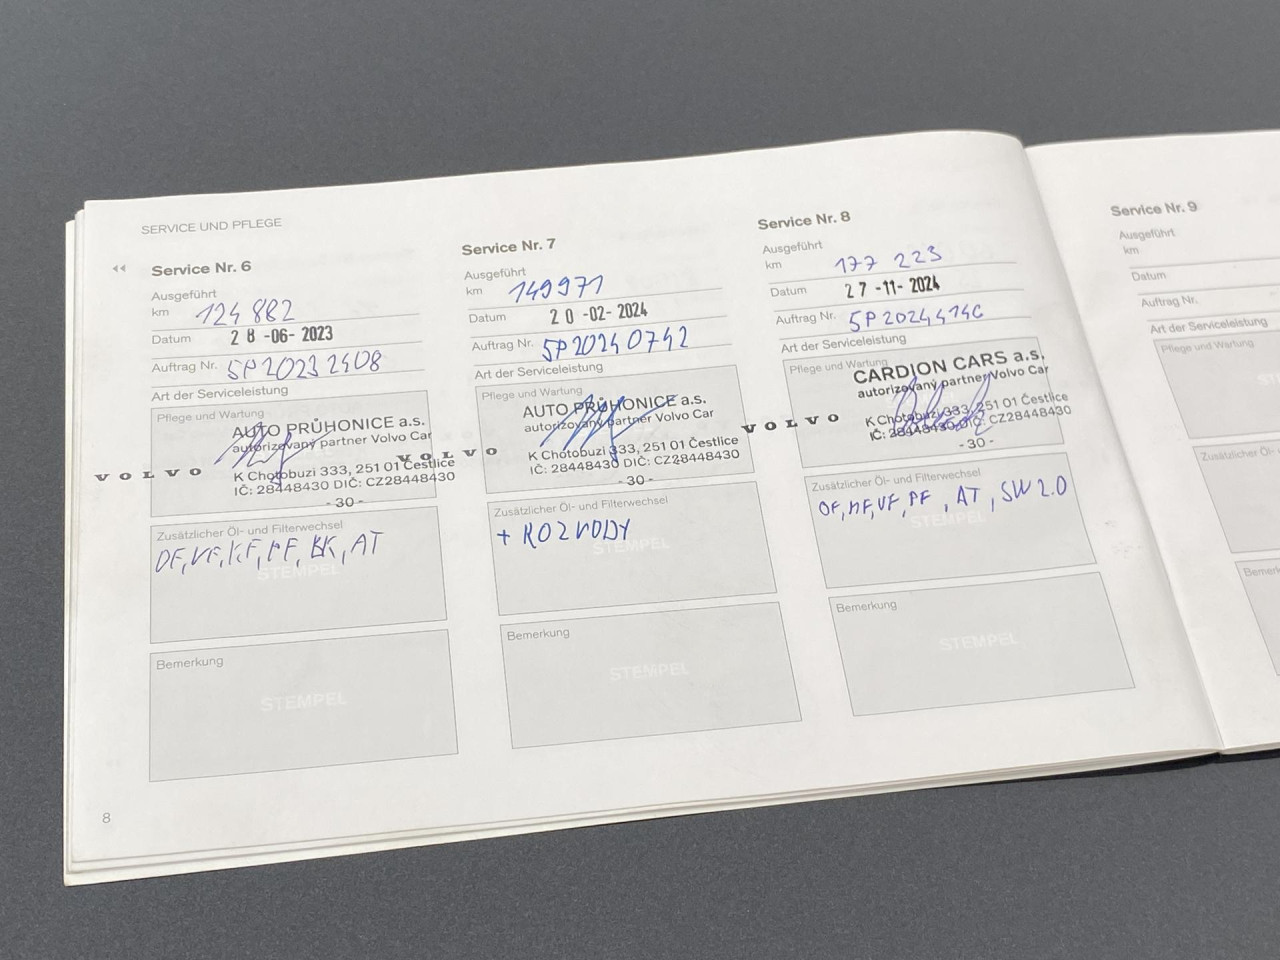 SERVICE UND PFLEGE
Service Nr. 6
Ausgeführt
km 124 882
Datum 28 -06- 2023
Auftrag Nr. 5P2023 2408
Art der Serviceleistung
Pflege und Wartung
AUTO PRŮHONICE a.s.
autorizovaný partner Volvo Car
VOLVO
K Chotobuzi 333, 251 01 Čestlice
IČ: 28448430 DIČ: CZ28448430
- 30 -
Zusätzlicher Öl- und Filterwechsel
OF, VF, KF, PF, BK, AT
STEMPEL
Bemerkung
STEMPEL
8
Service Nr. 7
Ausgeführt
km 149971
Datum 20 -02- 2024
Auftrag Nr. 5P2024 0742
Art der Serviceleistung
Pflege und Wartung
AUTO PRŮHONICE a.s.
autorizovaný partner Volvo Car
VOLVO
K Chotobuzi 333, 251 01 Čestlice
IČ: 28448430 DIČ: CZ28448430
- 30 -
Zusätzlicher Öl- und Filterwechsel
+ ROZVODY
STEMPEL
Bemerkung
STEMPEL
Service Nr. 8
Ausgeführt
km 177 223
Datum 27 -11- 2024
Auftrag Nr.
Art der Serviceleistung
Pflege und Wartung
CARDION CARS a.s.
autorizovaný partner Volvo Car
VOLVO
K Chotobuzi 333, 251 01 Čestlice
IČ: 28448430 DIČ: CZ28448430
- 30 -
Zusätzlicher Öl- und Filterwechsel
OF, VF, PF, AT, SW 2.0
STEMPEL
Bemerkung
STEMPEL
Service Nr. 9
Ausgeführt
km
Datum
Auftrag Nr.
Art der Serviceleistung
Pflege und Wartung